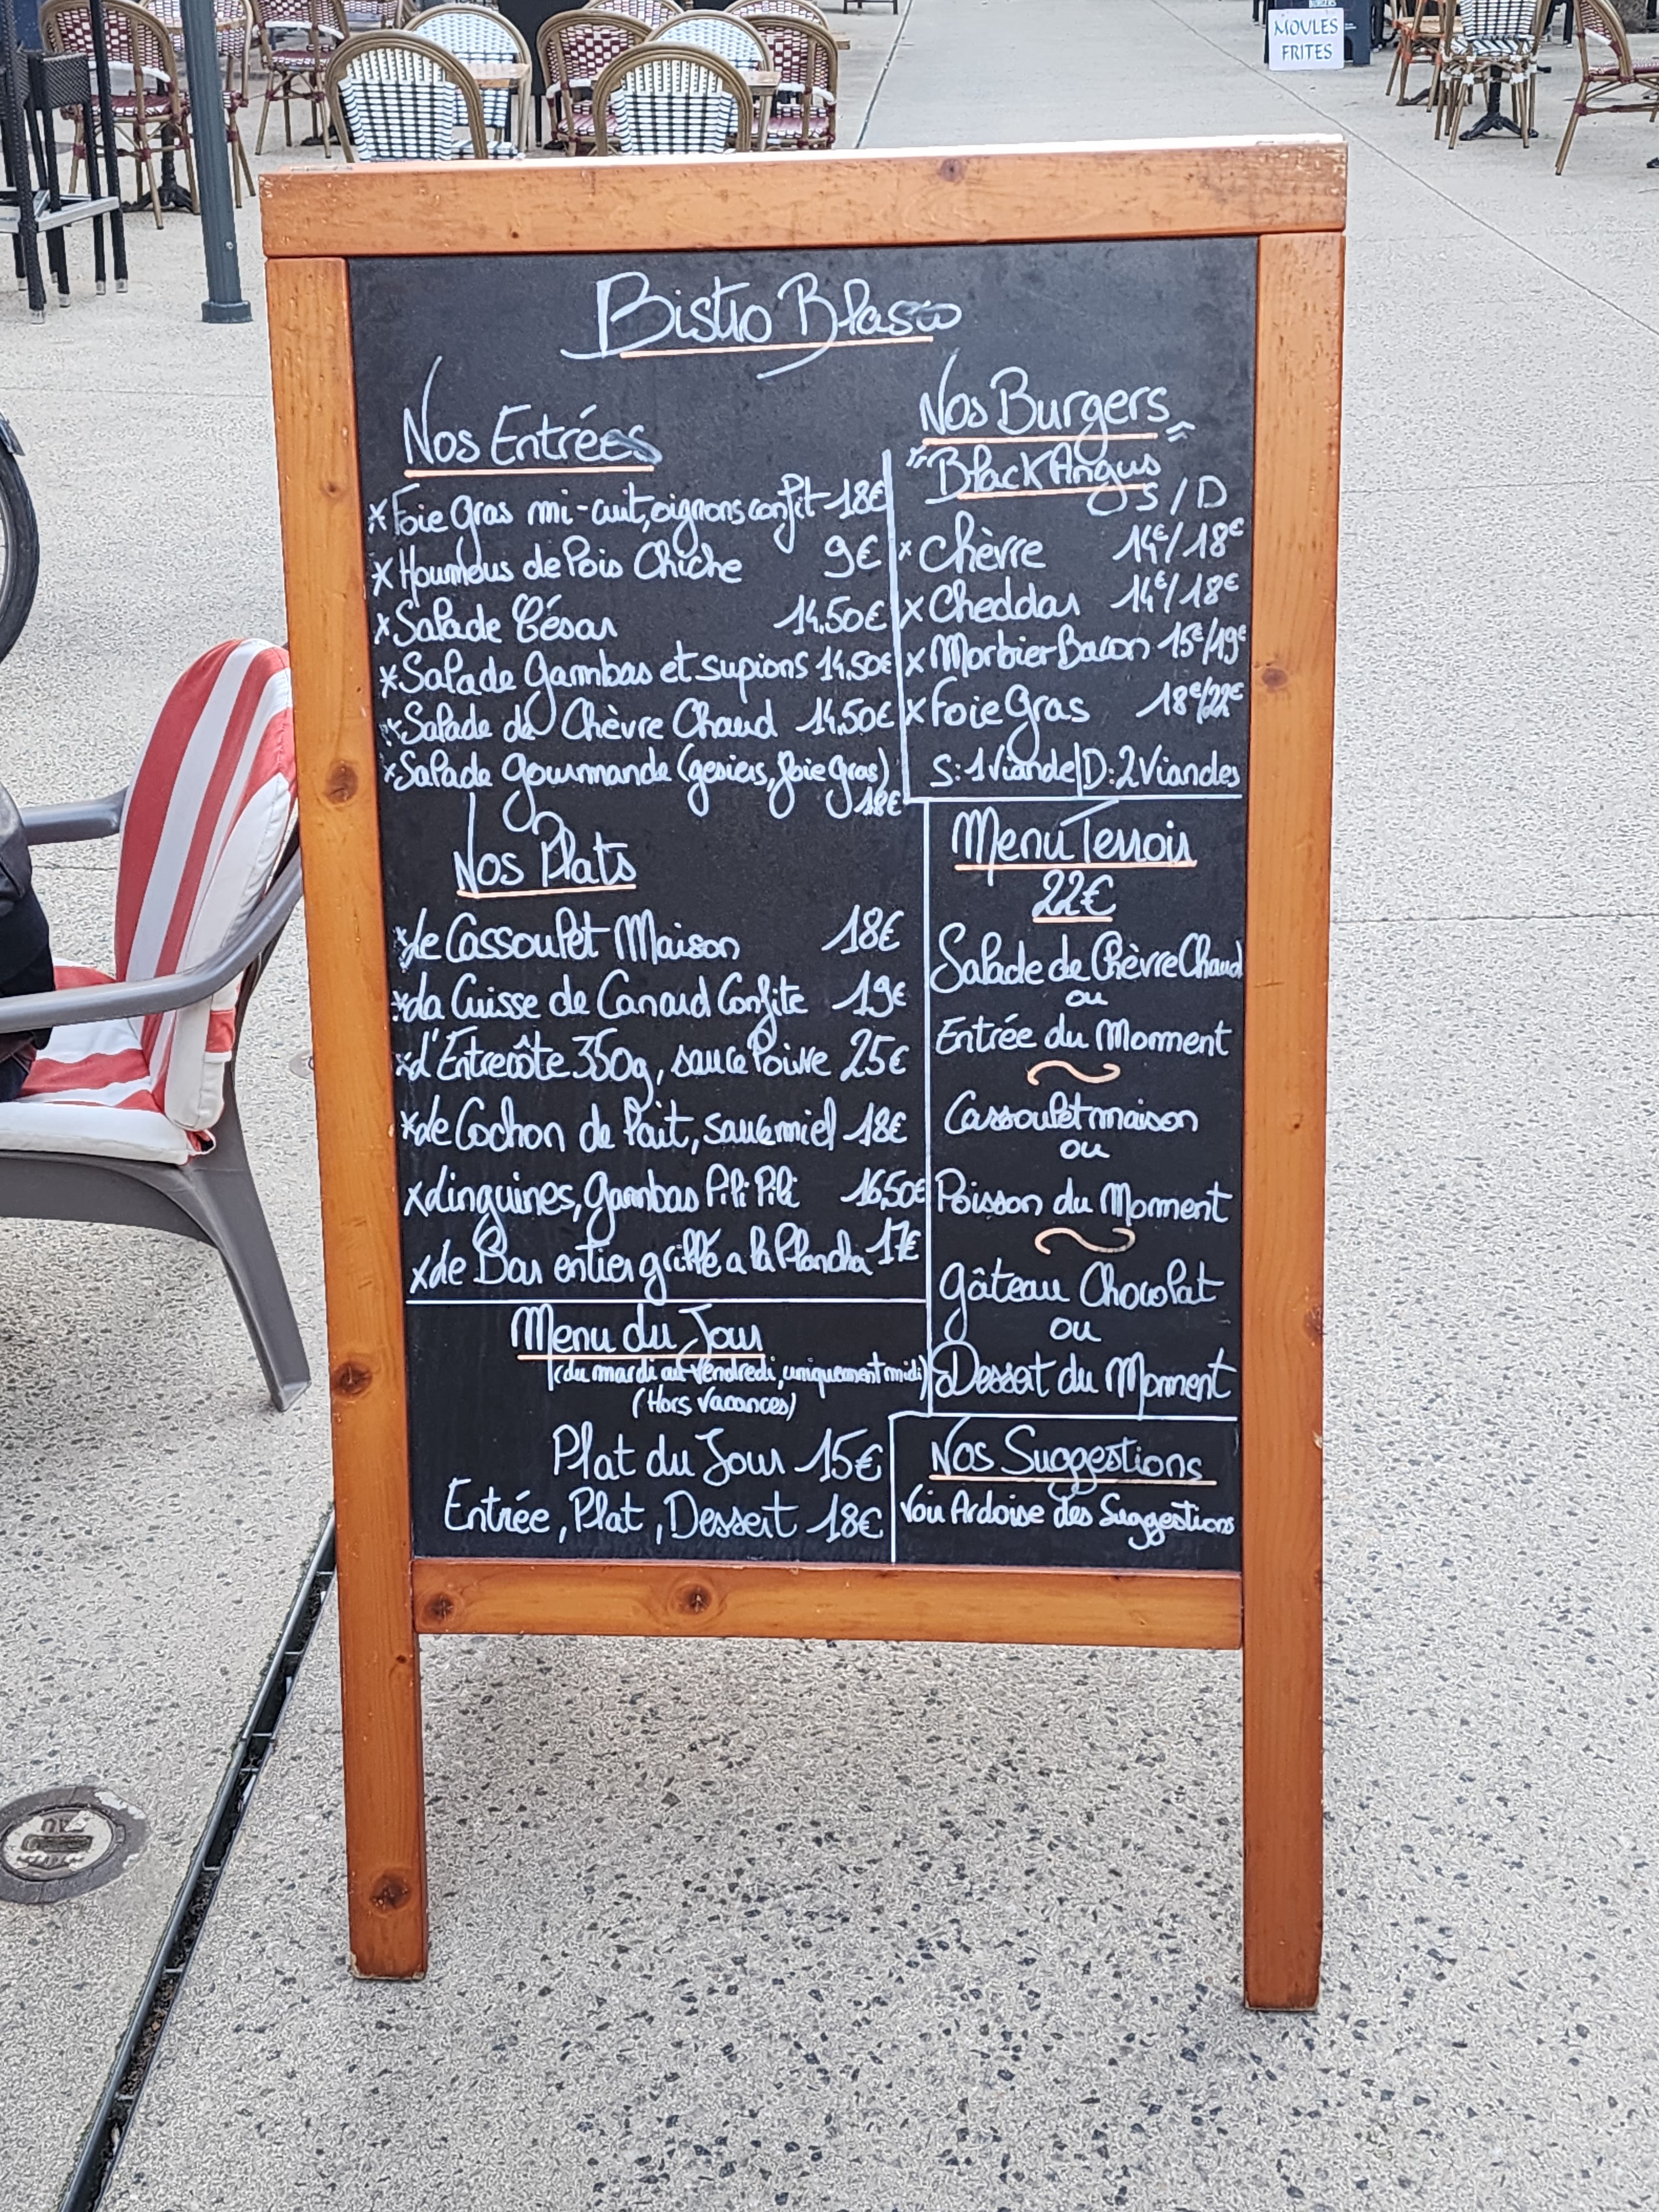 MOULES
FRITES
Bistro Blasco
Nos Entrées
*Foie Gras mi-cuit, oignons confit 18€
*Houmous de Pois Chiche 9€
*Salade César 14,50€
*Salade Gambas et supions 14,50€
*Salade de Chèvre Chaud 14,50€
*Salade Gourmande (gesiers, foie gras)
18€
Nos Plats
*Le Cassoulet Maison 18€
*La Cuisse de Canard Confite 19€
*L'Entrecôte 350g, sauce Poivre 25€
*Le Cochon de Lait, sauce miel 18€
*Linguines, Gambas Pili Pili 16,50€
*Le Bar entier grillé a la Plancha 17€
Menu du Jour
(du mardi au vendredi, uniquement midi)
(Hors Vacances)
Plat du Jour 15€
Entrée, Plat, Dessert 18€
Nos Burgers
"Black Angus"
S / D
*Chèvre 14€/18€
*Cheddar 14€/18€
*Morbier Bacon 15€/19€
*Foie Gras 18€/22€
S: 1 Viande | D: 2 Viandes
Menu Terroir
22€
Salade de Chèvre Chaud
ou
Entrée du Moment
Cassoulet maison
ou
Poisson du Moment
Gâteau Chocolat
ou
Dessert du Moment
Nos Suggestions
Voir Ardoise des Suggestions